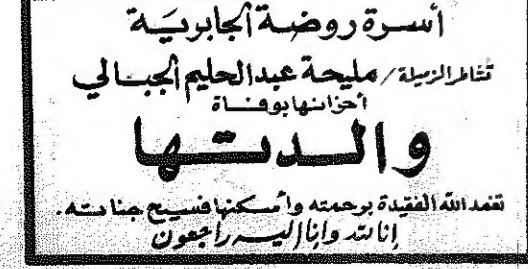 أسرة روضة الجابرية
تشاطر الزميلة / مليحة عبدالحليم الجبالي
أحزانها بوفاة
والدتها
تغمد الله الفقيدة برحمته وأسكنها فسيح جناته.
إنا لله وإنا إليه راجعون